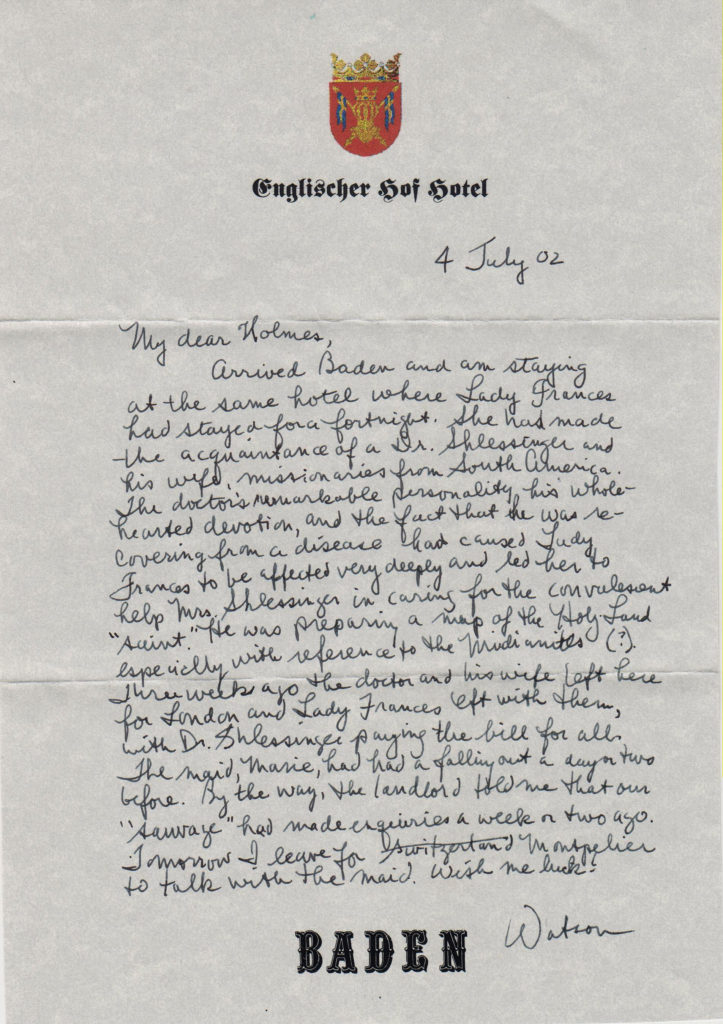 Englischer Hof Hotel
4 July 02
My dear Holmes,
Arrived Baden and am staying
at the same hotel where Lady Frances
had stayed for a fortnight. She had made
the acquaintance of a Dr. Shlessinger and
his wife, missionaries from South America.
The doctor's remarkable personality, his whole-
hearted devotion, and the fact that he was re-
covering from a disease had caused Lady
Frances to be affected very deeply and led her to
help Mrs. Shlessinger in caring for the convalescent
"saint." He was preparing a map of the Holy Land
especially with reference to the Midianites (?).
Three week ago the doctor and his wife left here
for London and Lady Frances left with them,
with Dr. Shlessinger paying the bill for all.
The maid, Marie, had had a falling out a day or two
before. By the way, the landlord told me that our
"sauvage" had made enquiries a week or two ago.
Tomorrow I leave for Switzerland Montpelier
to talk with the maid. Wish me luck!
Watson
BADEN